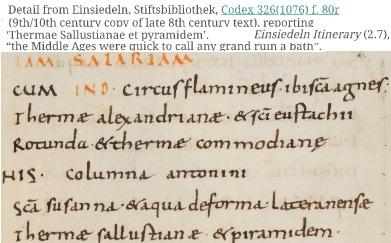 Detail from Einsiedeln, Stiftsbibliothek, Codex 326(1076) f. 80r
(9th/10th century copy of late 8th century text), reporting
'Thermae Sallustianae et pyramidem'. Einsiedeln Itinerary (2.7),
"the Middle Ages were quick to call any grand ruin a bath".
IAM SALARIAM
CUM IND· Circus flamineus· ibi scā agnes·
Thermæ alexandrianæ· & scī eustachii
Rotunda &thermæ commodianę
HIS· Columna antonini
Scā susanna· & aqua deforma lateranense
Thermæ sallustianæ· &piramidem·